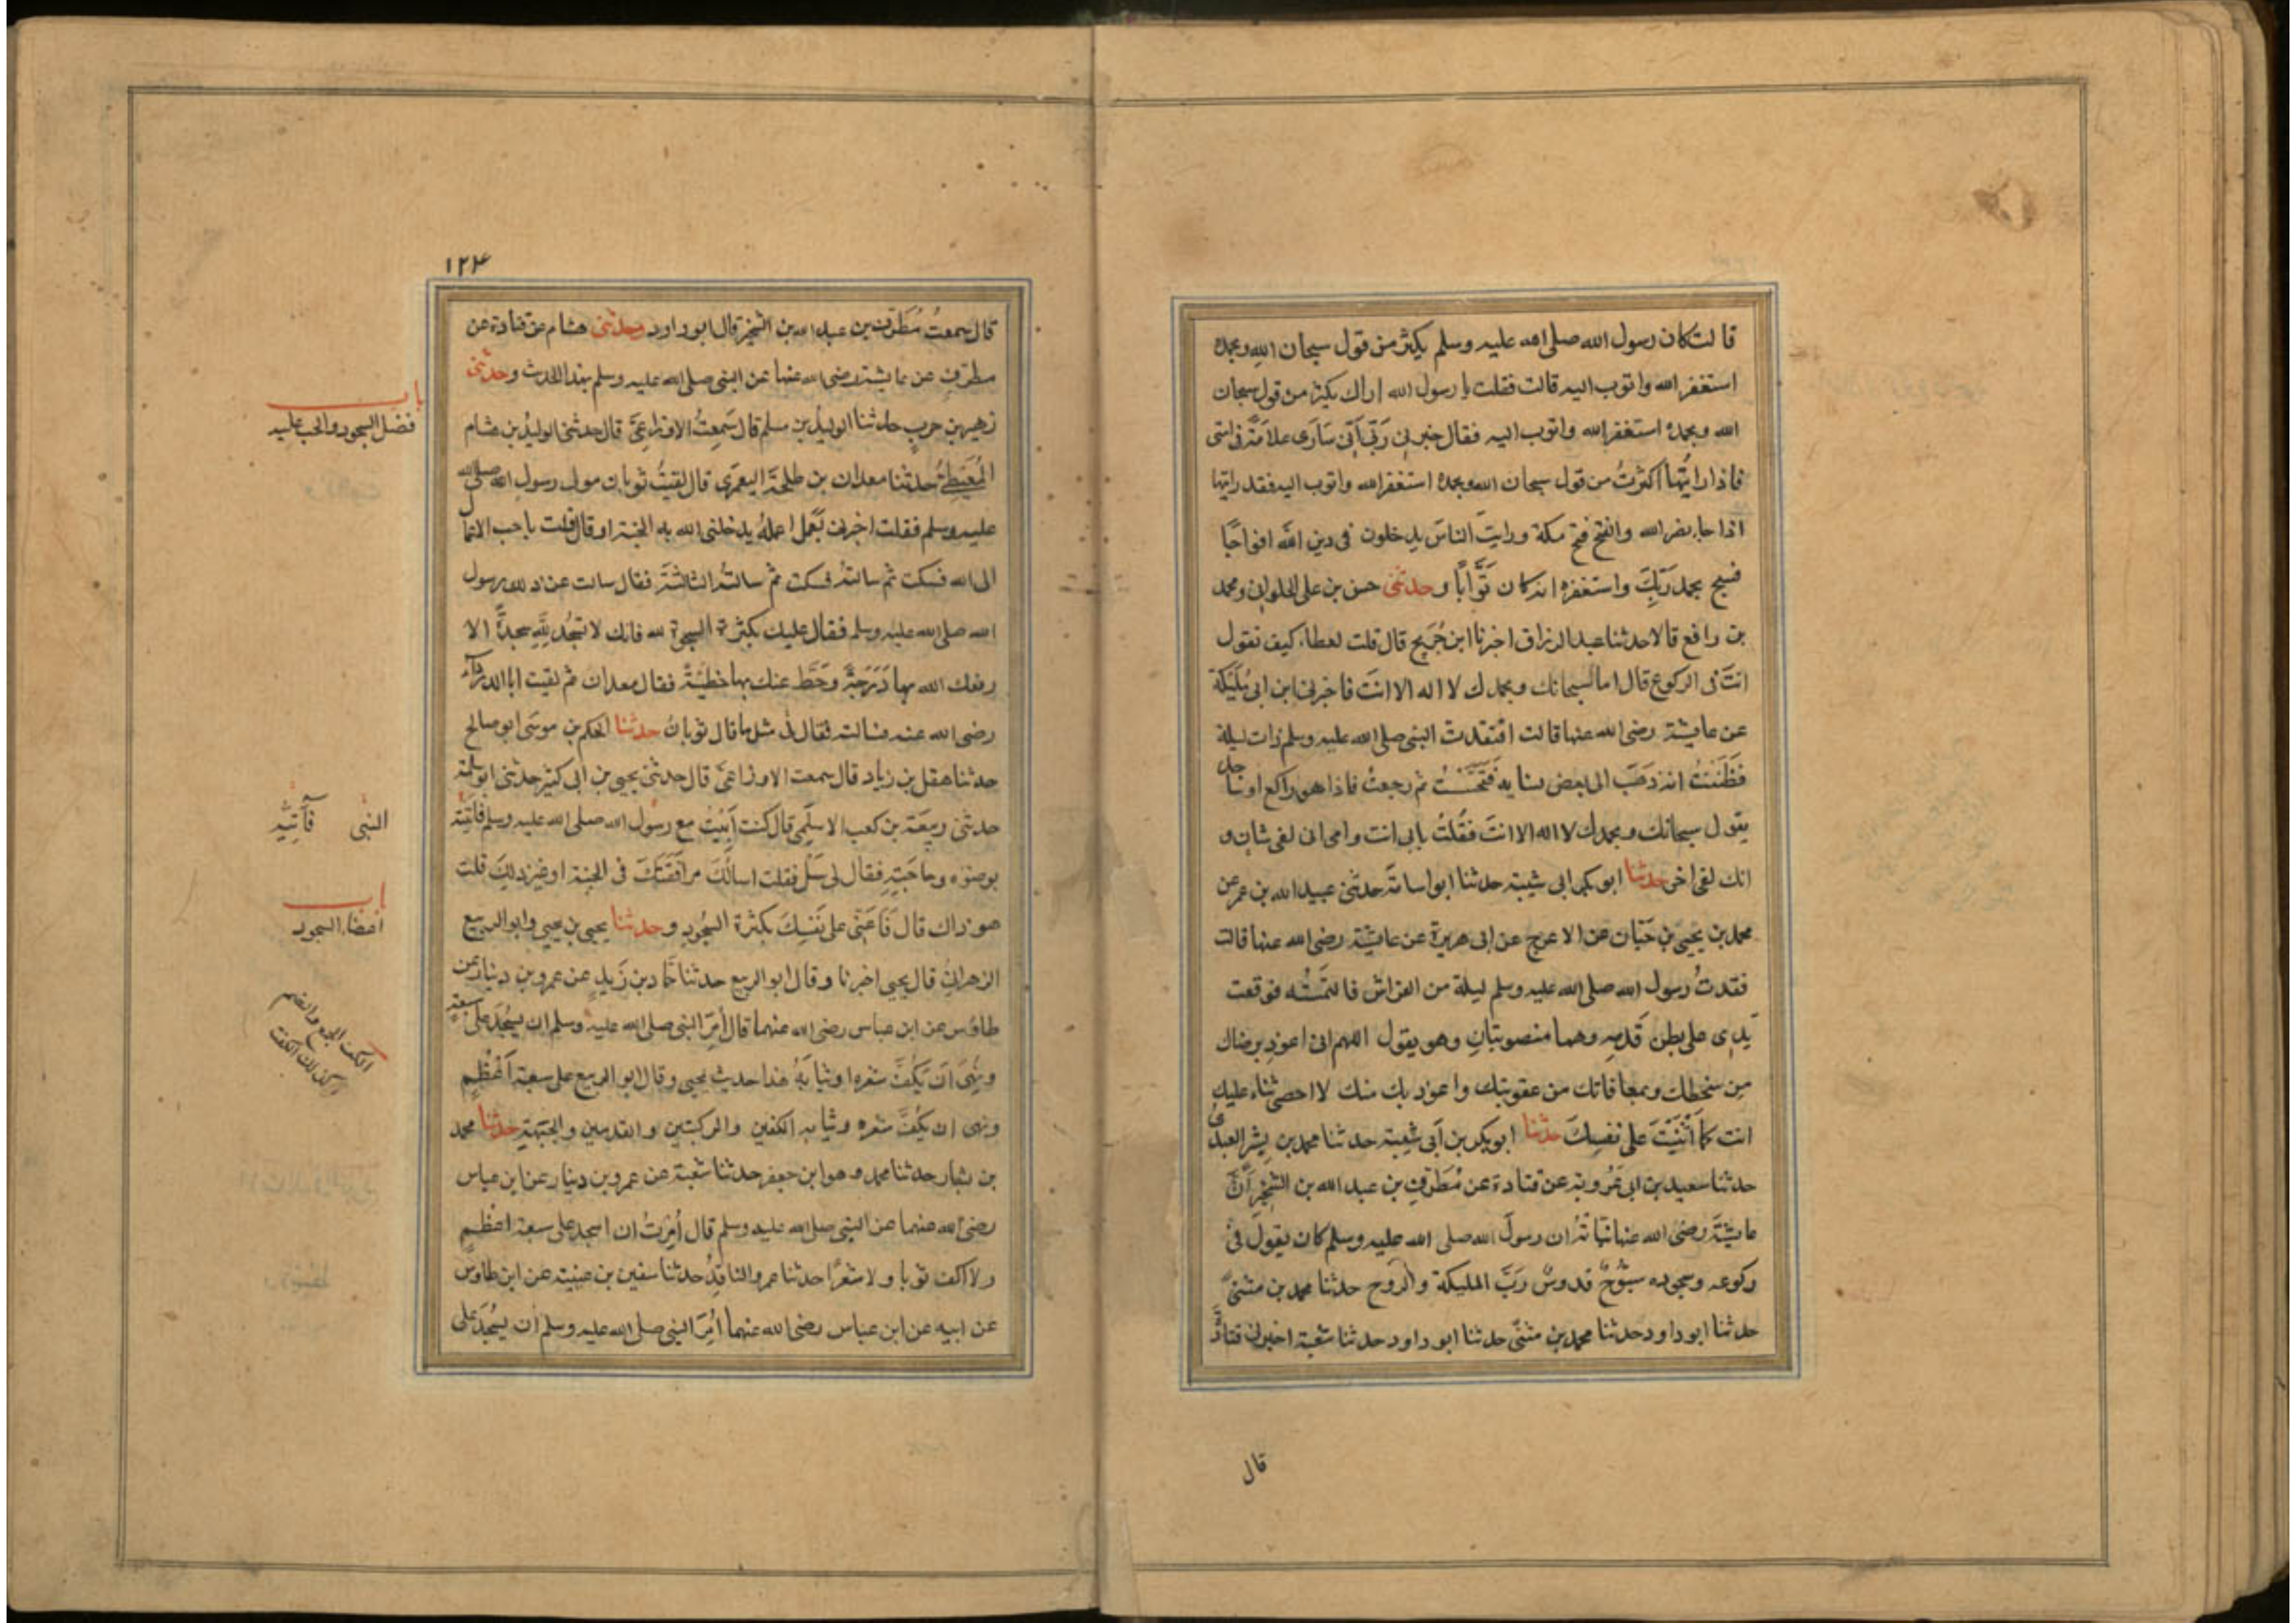 قالت كان رسول الله صلى الله عليه وسلم يكثر من قول سبحان الله وبحمده
استغفر الله واتوب اليه قالت فقلت يا رسول الله اراك تكثر من قول سبحان
الله وبحمده استغفر الله واتوب اليه فقال خبرنى رَبّى اَنّى سَارَى علاَمَةً فى امتى
فاذا رايتُها اكثرتُ من قول سبحان الله وبحمده استغفر الله واتوب اليه فقد رايتها
اذا جاء نصر الله والفتح فتح مكة ورايتَ الناسَ يدخلون فى دين الله افواجًا
فسبح بحمد رَبِّكَ واستغفره انه كان تَوَّابًا وحدثنى حسن بن على الحلوانى ومحمد
بن رافع قالا حدثنا عبد الرزاق اخبرنا ابن جُرَيج قال قلت لعطاء كيف تقول
انتَ فى الركوع قال اما سبحانك وبحمدك لا اله الا انتَ فاخبرنى ابن ابى مُلَيكة
عن عايشة رضى الله عنها قالت افتقدت النبى صلى الله عليه وسلم ذات ليلة
فَظَنَنتُ انه ذهَبَ الى بعض نسايه فَتَحَسَّستُ ثم رجعتُ فاذا هو راكع او ساجد
يقول سبحانك وبحمدك لا اله الا انتَ فقُلتُ بابى انت وامى انى لفى شانٍ و
انك لفى اخر حدثنا ابو بكر ابى شيبة حدثنا ابو اسامَة حدثنى عبيد الله بن عمر عن
محمد بن يحيى بن حَبّان عن الاعرج عن ابى هريرة عن عايشة رضى الله عنها قالت
فقدتُ رسول الله صلى الله عليه وسلم ليلة من الفراش فالتمَستُه فوقعت
يَدِى على بطن قَدمِه وهما منصوبتانِ وهو يقول اللهم انى اعوذ برضاك
مِن سخطك وبمعافاتك من عقوبتك واعوذ بك منك لا احصى ثناء عليك
انت كما اَثنَيتَ على نفسِكَ حدثنا ابو بكر بن اَبى شيبة حدثنا محمد بن بِشر العبدىُ
حدثنا سعيد بن ابى عَرُوبة عن قتادة عن مُطَرِّفِ بن عبد الله بن الشخير اَنَّ
عايشَةَ رضى الله عنها نَبّاَتهُ ان رسولَ الله صلى الله عليه وسلم كان يقولَ فى
ركوعه وسجوده سبّوحٌ قدوسٌ رَبُّ المليكة والرُوح حدثنا محمد بن مثنىً
حدثنا ابو داود حدثنا محمد بن مثنىً حدثنا ابو داود حدثنا شعبة اخبرنى قتادَةُ
قال
١٢٤
قال سمعتُ مُطَرِّفَ بن عبد الله بن الشخير قال ابو داود وحدثنى هشام عن قتادة عن
مطرّفِ عن عايشة رضى الله عنها عن النبى صلى الله عليه وسلم بهذا الحديث وحدثنى
زهير بن حربٍ حدثنا الوليدُ بن مسلم قال سَمِعتُ الاوزاعِىَّ قال حدثنى الوليدُ بن هشام
المُعَيطِىُّ حدثنا معدان بن طلحَةَ اليعمَرِى قال لقيتُ ثوبان مولى رسول الله صلى الله
عليه وسلم فقلت اخبرنى بعَمل اعملهُ يدخلنى الله به الجنة او قال قلت باحب الاعمال
الى الله فسكت ثم سالتهُ فسكت ثم سالتُه الثالثَة فقال سالت عن ذلك رسول
الله صلى الله عليه وسلم فقال عليك بكثرة السجود لله فانك لا تسجُد لِلّهِ سجدةً الا
رفعك الله بها دَرَجَةً وحَطَّ عنك بها خطيئةً فقال معدان ثم لقيت ابا الدرداء
رضى الله عنه فسالته فقال لى مثل ما قال ثوبانُ حدثنا الحكم بن موسَى ابو صالح
حدثنا هقل بن زياد قال سمعت الاوزاعىَّ قال حدثنى يحيى بن ابى كثير حدثنى ابو سلمة
حدثنى ربيعَة بن كعب الاسلَمِى قال كنت اَبِيتُ مع رسول الله صلى الله عليه وسلم فاَتَيتُه
بوضوئه وحاجَتِهِ فقال لى سَل فقلت اسالُكَ مرافَقَتَكَ فى الجنة او غير ذلكَ قلت
هو ذاك قال فَاَعِنّى على نَفسِكَ بكثرة السُجُودِ وحدثنا يحيى بن يحيى وابو الربيع
الزهرانِىُّ قال يحيى اخبرنا وقال ابو الربيع حدثنا حَمّاد بن زَيدٍ عن عمرو بن دينار عن
طاوُس عن ابن عباس رضى الله عنهما قال اُمِرَ النبى صلى الله عليه وسلم ان يسجُدَ على سبعة
ونُهِىَ اَن يَكُفَّ شعره او ثيابَهُ هذا حديث يحيى وقال ابو الربيع على سبعة اَعْظُمٍ
ونهى ان يكُفَّ شعره وثيابه الكفين والركبتين والقدمين والجَبهَةِ حدثنا محمد
بن بشار حدثنا محمد وهو ابن جعفر حدثنا شعبة عن عمرو بن دينار عن ابن عباس
رضى الله عنهما عن النبى صلى الله عليه وسلم قال اُمِرتُ ان اسجد على سبعة اعظُمٍ
ولا اكف ثوبا ولا شعرًا حدثنا عمرو الناقِدُ حدثنا سفين بن عيينة عن ابن طاوس
عن ابيه عن ابن عباس رضى الله عنهما اُمِرَ النبى صلى الله عليه وسلم اَن يسجُدَ على
باب
فضل السجود والحب عليه
النبى فآتيه
باب
اعضاء السجود
الكفت الجمع والضم